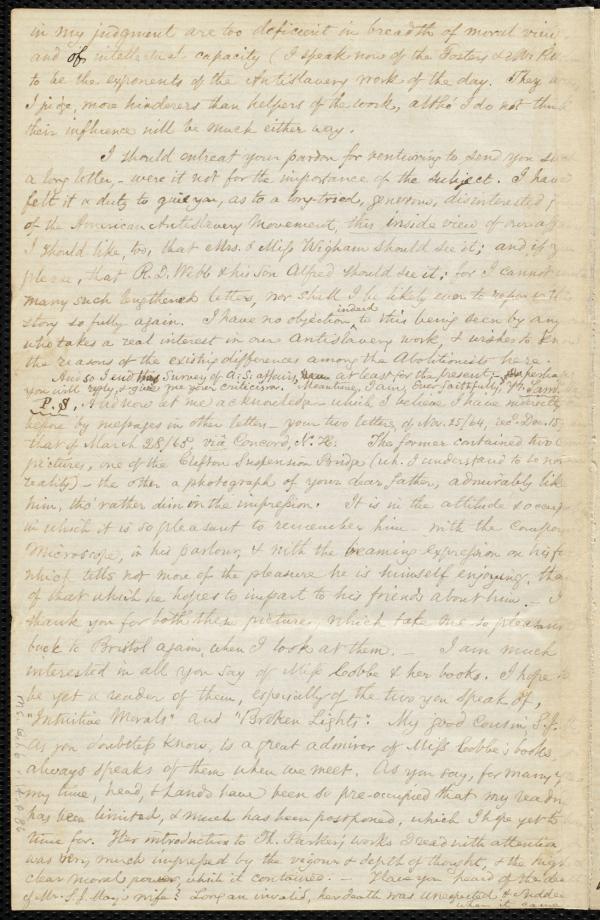 in my judgment are too deficient in breadth of moral view
and of intellectual capacity (I speak now of the Fosters & Mr.
to be the exponents of the Antislavery work of the day. They are,
I judge, more hinderers than helpers of the work, altho' I do not think
their influence will be much either way.
I should entreat your pardon for venturing to send you such
a long letter, - were it not for the importance of the subject. I have
felt it a duty to give you, as to a long-tried, generous, disinterested
of the American Antislavery Movement, this inside view of our
I should like, too, that Mrs. & Miss Wigham should see it; and if you
please, that R. D. Webb & his son Alfred should see it; for I cannot
many such lengthened letters, nor shall I be likely ever to
story so fully again. I have no objection indeed to this being seen by any
who takes a real interest in our Antislavery work, & wishes to know
the reasons of the existing differences among the Abolitionists here.
And so I end this Survey of A. S. affairs, at least for the present; - perhaps
you will reply, & give me your criticism. Meantime, I am, Ever faithfully, Yrs.
P.S. And now let me acknowledge - which I believe I have
before by messages in other letters - your two letters, of Nov. 25/64, rec'd Dec. 15,
that of March 28/65, via Concord, N. H. The former contained two
pictures, one of the Clifton Suspension Bridge (wh. I understand to be now
reality) - the other a photograph of your dear father, admirably like
him, tho' rather dim in the impression. It is in the attitude &
in which it is so pleasant to remember him - with the
Microscope, in his parlour, & with the beaming expression on his
which tells not more of the pleasure he is himself enjoying, than
of that which he hopes to impart to his friends about him. - I
thank you for both these pictures, which take me so
back to Bristol again, when I look at them. - I am much
interested in all you say of Miss Cobbe & her books. I hope to
be yet a reader of them, especially of the two you speak of,
"Intuitive Morals" and "Broken Lights". My good cousin
as you doubtless know, is a great admirer of Miss Cobbe's books,
always speaks of them when we meet. As you say, for many
my time, head, & hands have been so pre-occupied that my
has been limited, & much has been postponed, which I hope yet to
time for. Her introduction to Th. Parker's works I read with attention
was very much impressed by the vigour & depth of thought, & the high
clear moral power, which it contained. - Have you heard of the
of Mr. S. J. May's wife? Long an invalid, her death was unexpected & sudden
when it came